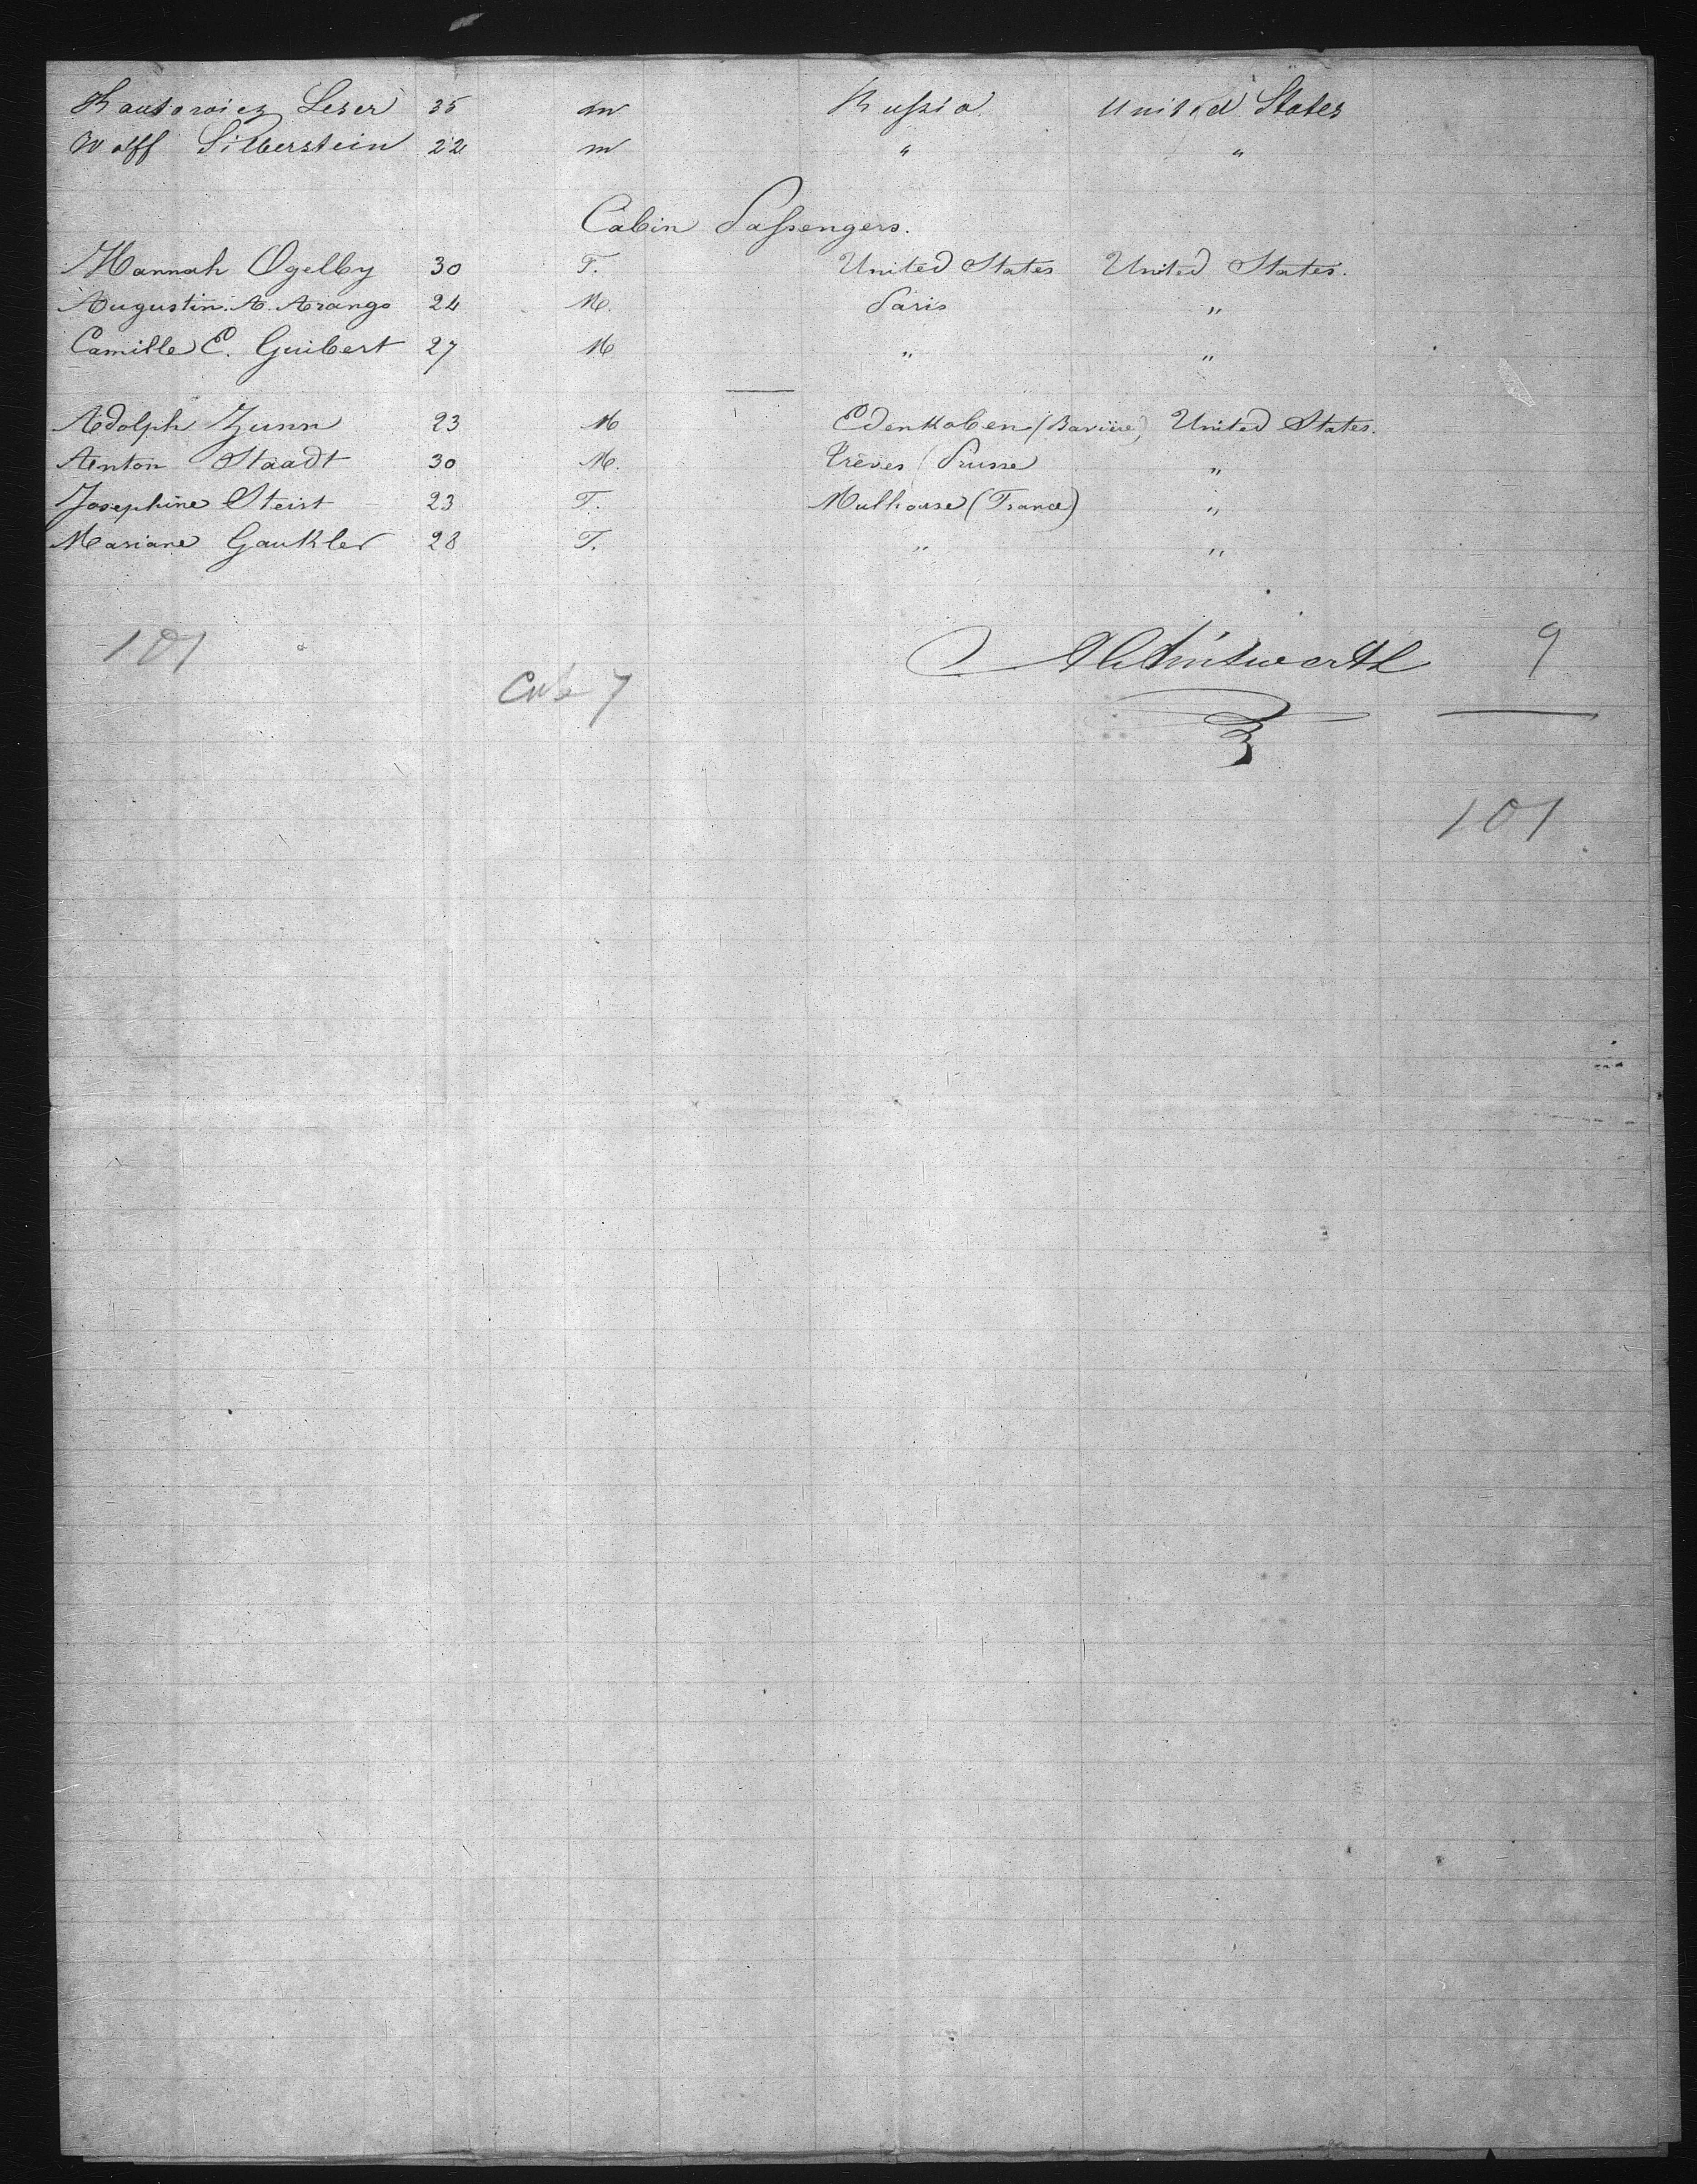 Kantorowicz Leser 35 m Russia United States
Wolff Silberstein 22 m " "
Cabin Passengers.
Hannah Ogelby 30 F. United States United States.
Augustin A. Arango 24 M. Paris "
Camille E. Guibert 27 M " "
Adolph Zunn 23 M Edenkoben (Bavière) United States.
Anton Staadt 30 M. Trèves (Prusse "
Josephine Steist 23 F. Mulhouse (France) "
Mariane Gaukler 28 F. " "
101 9
Cab 7
101